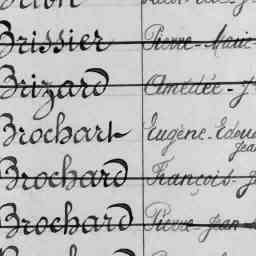 Brissier Pierre - Marie -
Brizard Amédée - J
Brochart Eugène - Edoua
Jean
Brochard François - J
Brochard Pierre - Jean